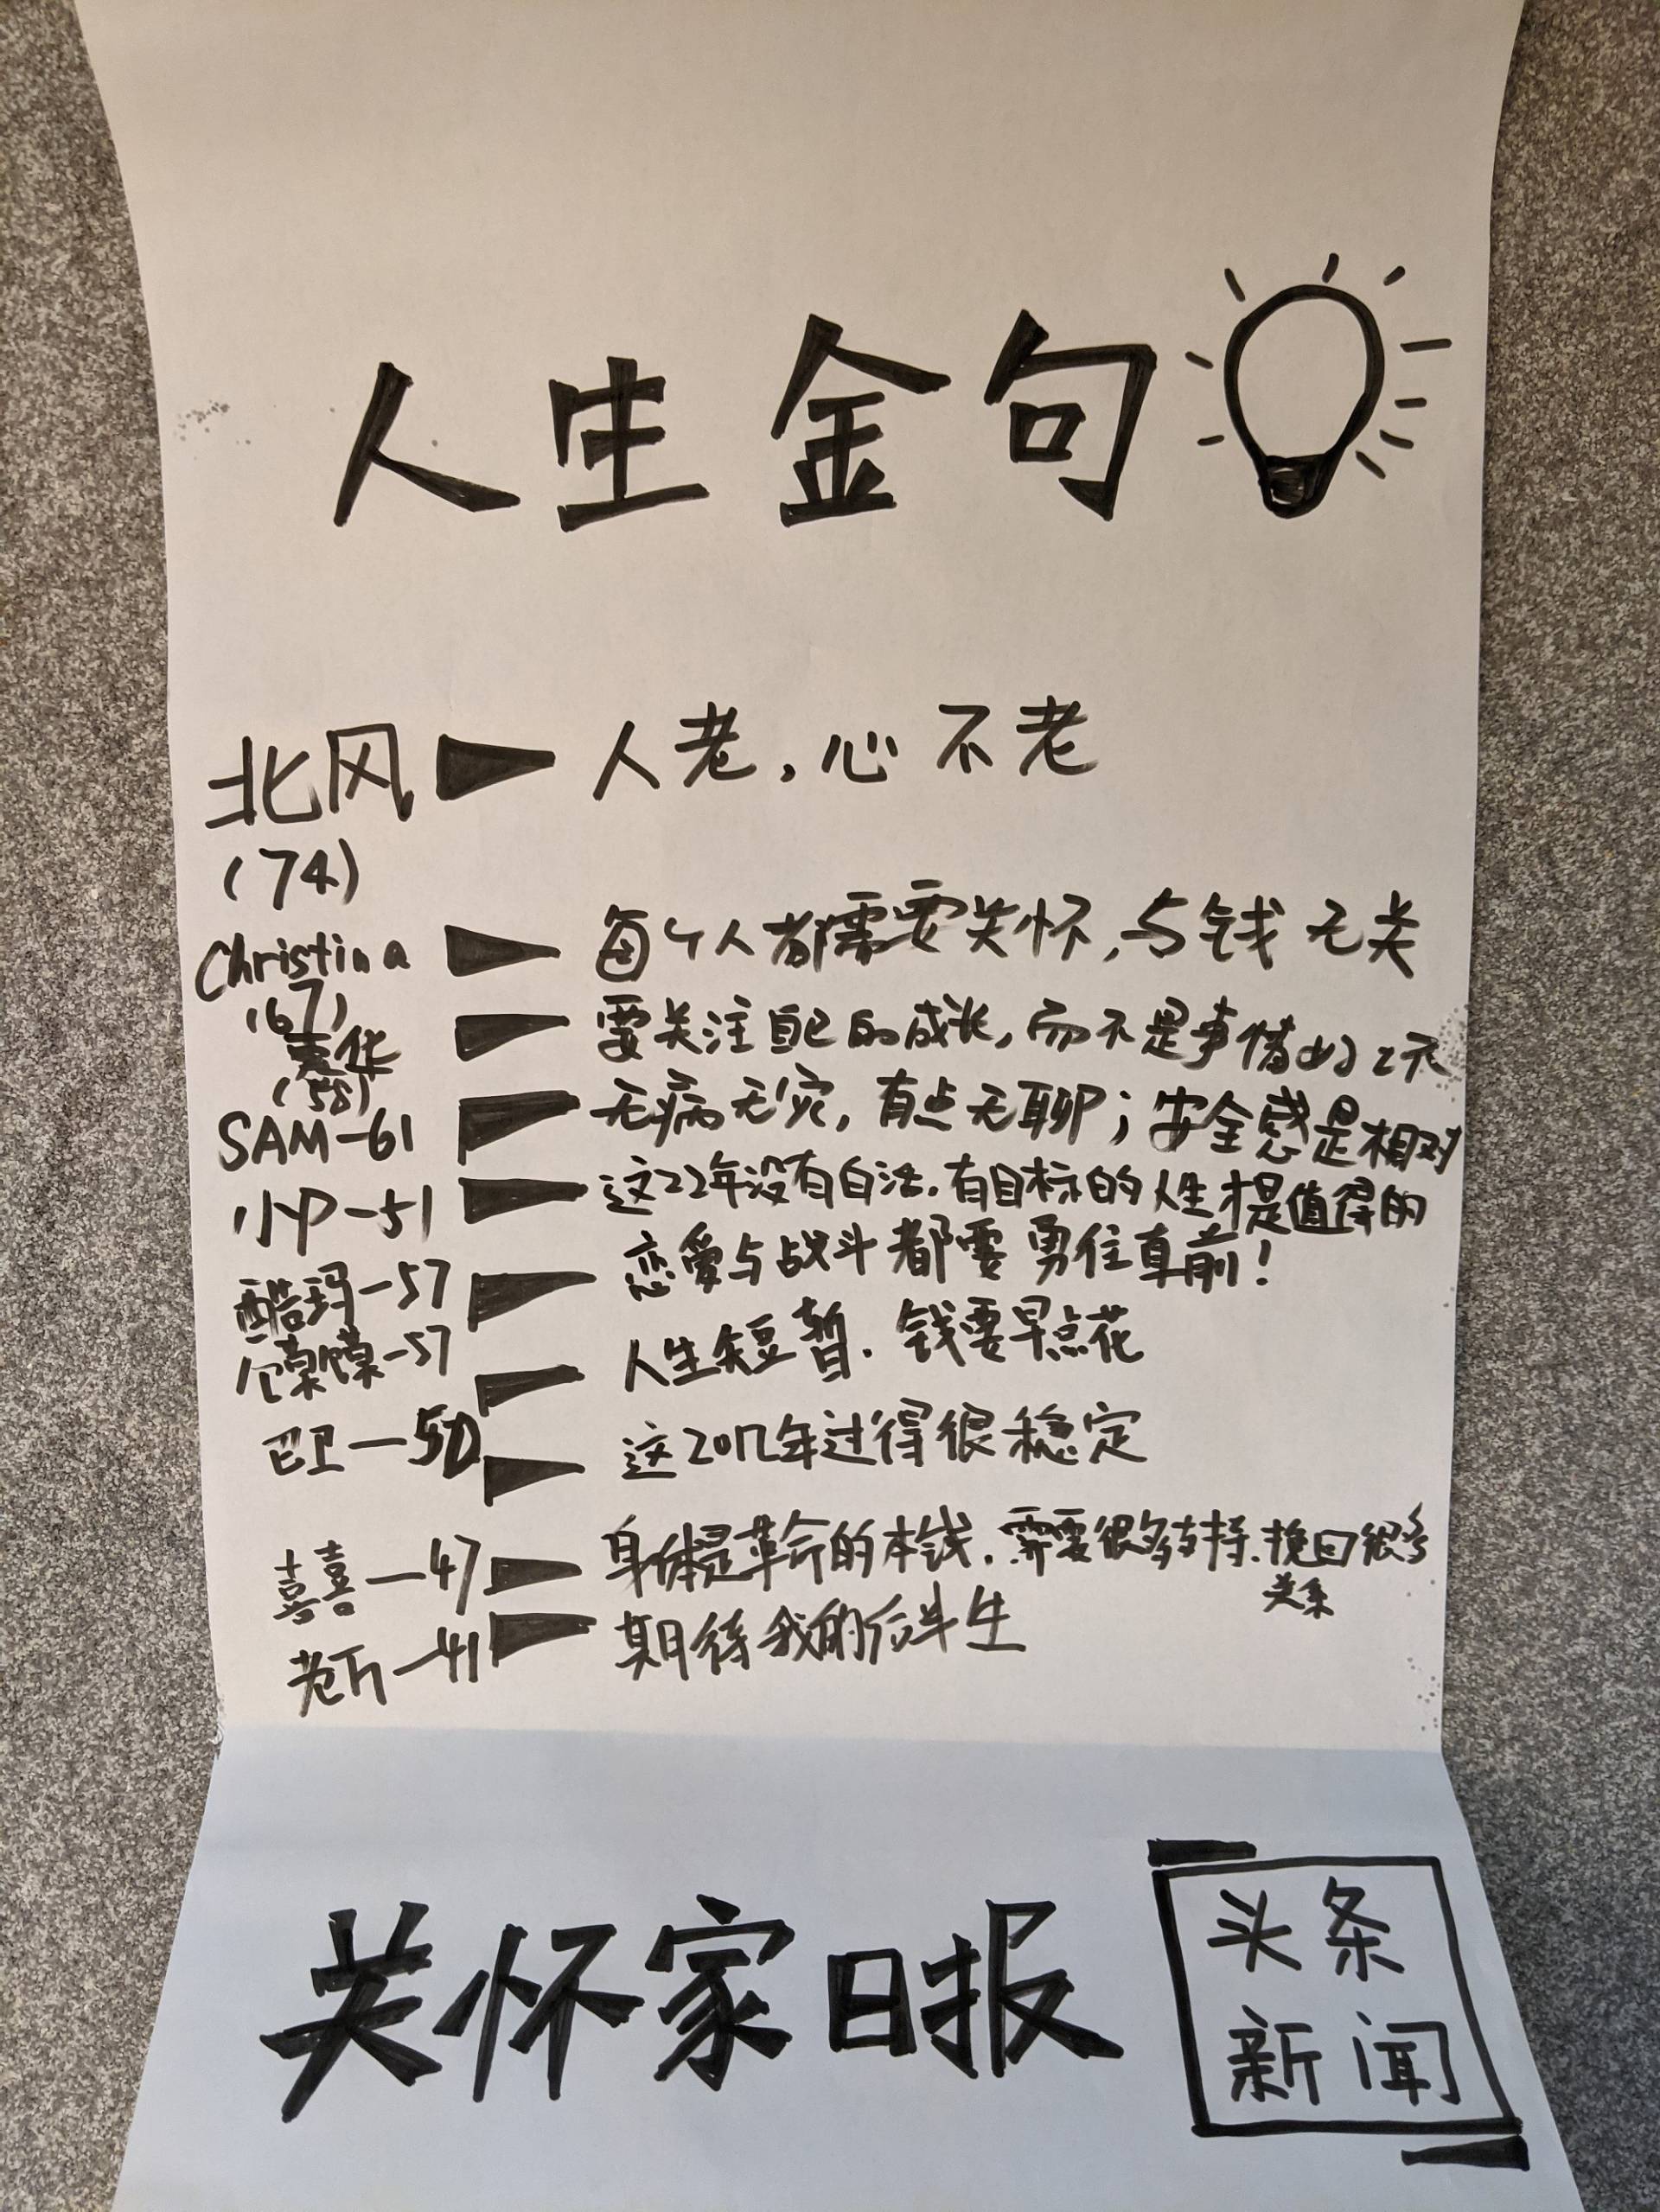 人生金句
北风 人老,心不老
(74)
Christina 每个人都需要关怀,与钱无关
(67)
袁华 要关注自己的成长,而不是事情
(58)
SAM-61 无病无灾,有点无聊;安全感是相对
小中-51 这22年没有白活.有目标的人生才是值得的
酷玛-57 恋爱与战斗都需要勇往直前!
-57 人生短暂.钱要早点花
-50 这20几年过得很稳定
喜喜-47 身体是革命的本钱.需要很多支持.挽回很多
关系
-41 期待我的后半生
关怀家日报
头条
新闻